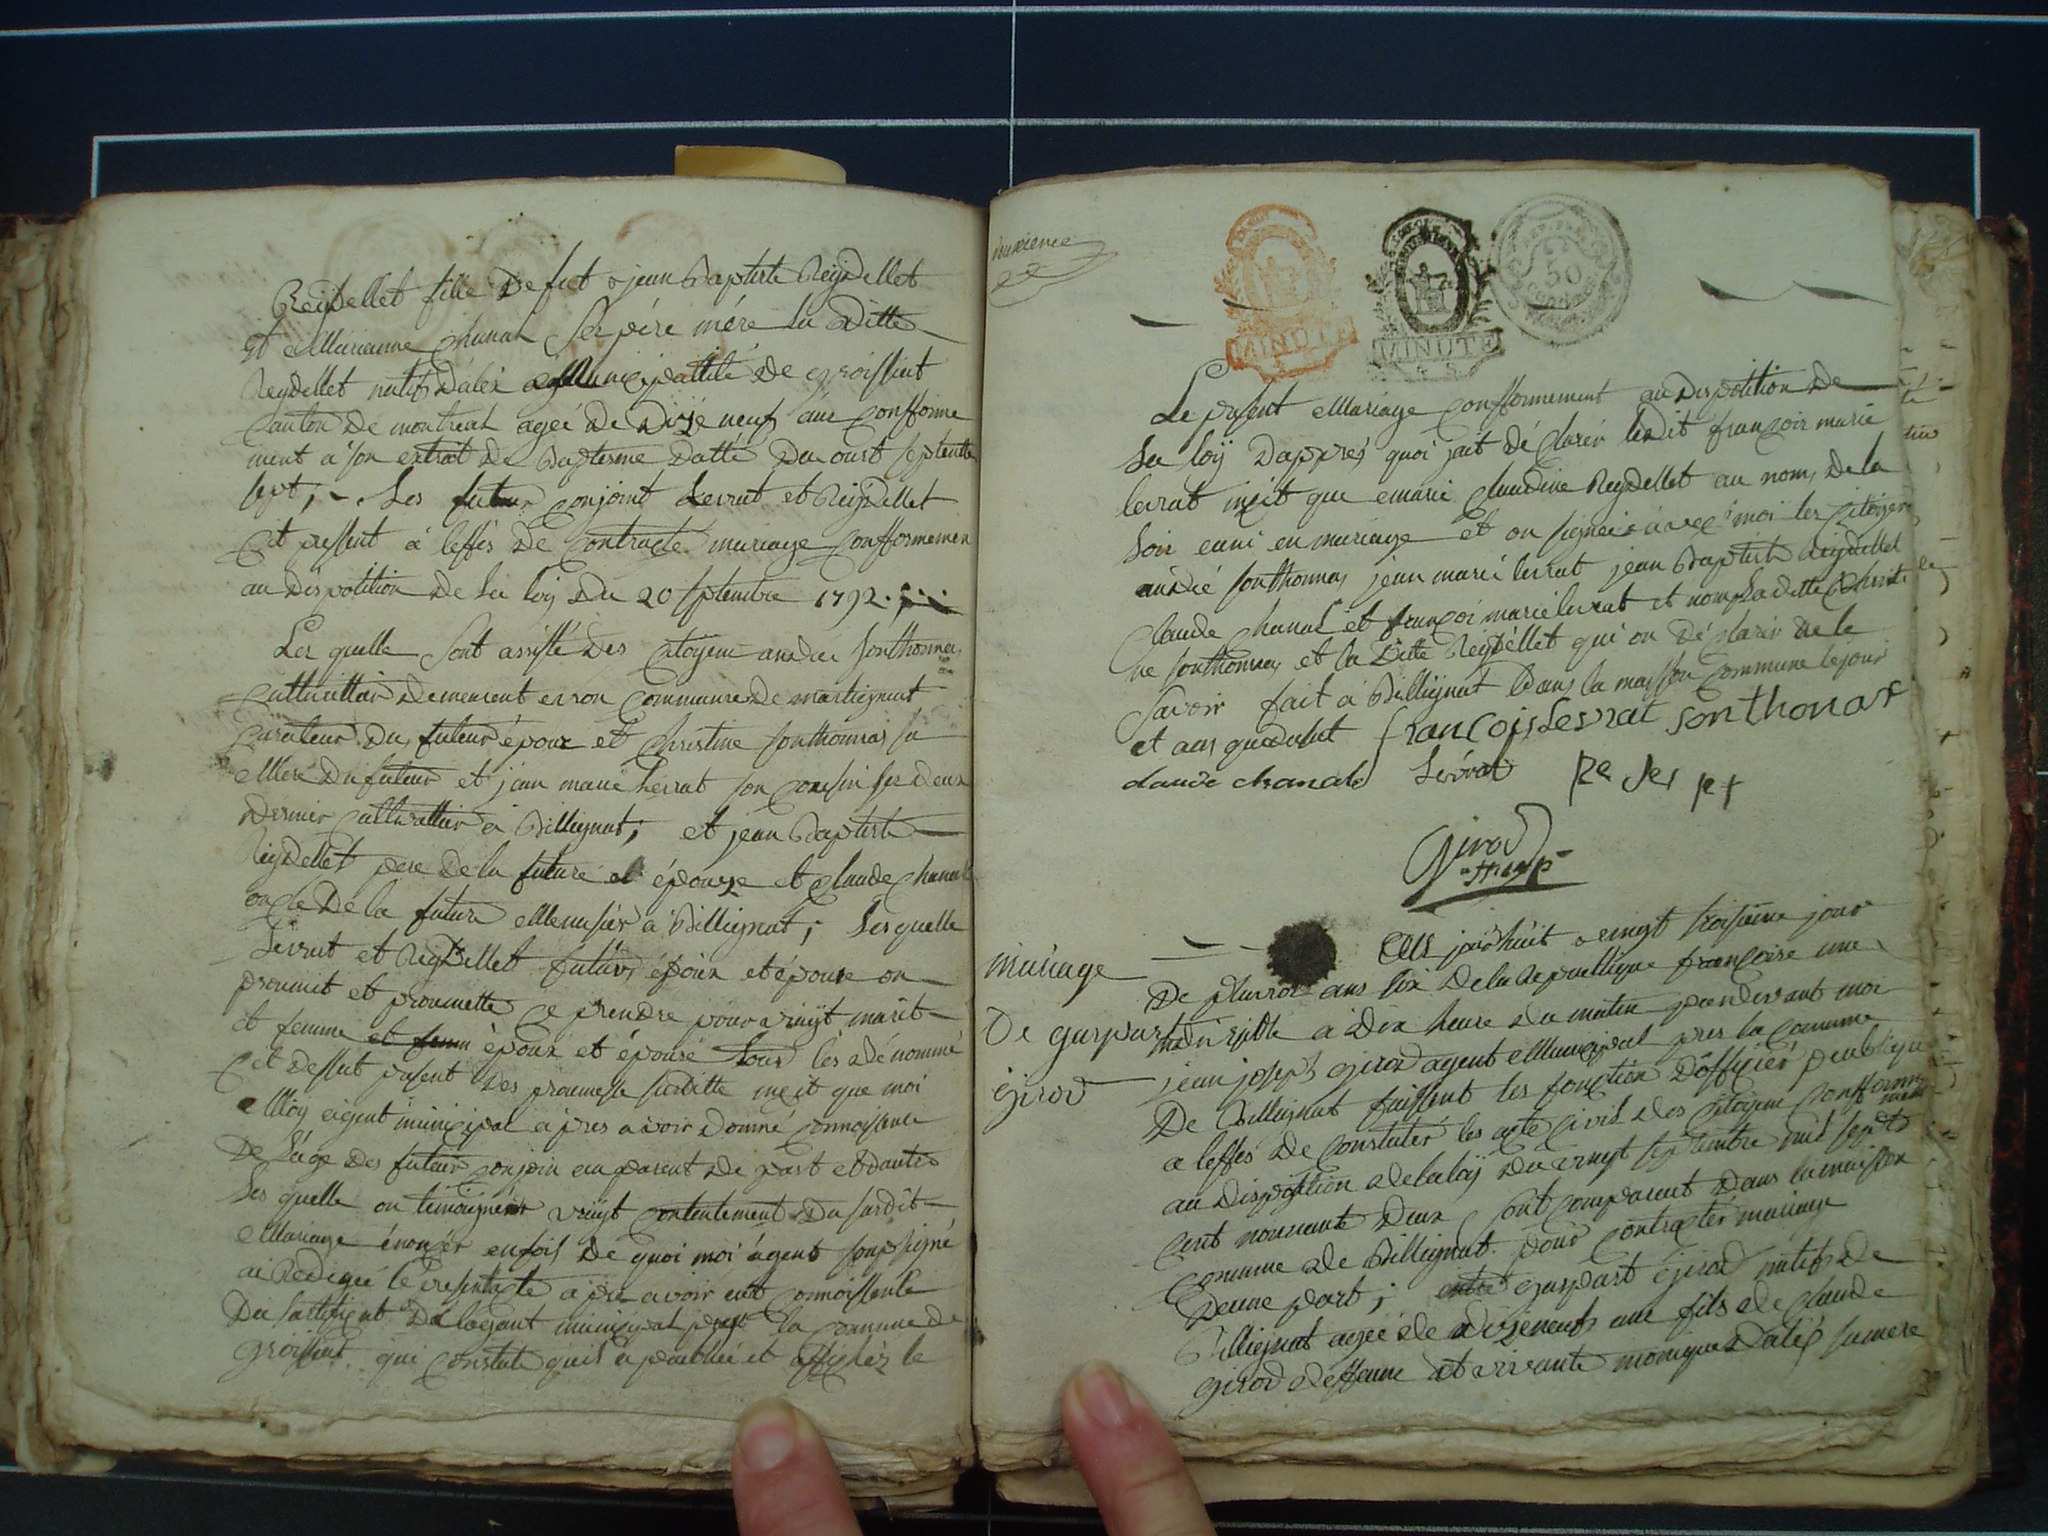 Reydellet fille de fiet jean Baptiste Reydellet
et Marianne Chanal Ses père mére La ditte
Reydellet natif dalex municipallité de groissiat
Canton de montreal agée de dize neuf ans conforme
ment à son extrait de Bapteme datté du oust septente
sept; Les futeur conjoint Levrat et Reydellet
cit pressent à leffés de contracte mariage conformemen
au dispotition de La loy du 20 septembre 1792.
Les quelle sont assisté des citoyens andré sonthonna
cultivattur demeurent en son commune de martignat
curateur du futeur époux et christine sonthonnas sa
Mere du futeur et jean marie Levrat son cousin les deux
dernier cultivattur à Billignat; et jean Baptiste
Reydellet pere de la future épouze et claude chanal
oncle de la future Menusier à Billignat; Lesquelle
Levrat et Reydellet futur époux et épouse on
proumit et proumette ce prendre pour vraiyt marit
et femme et femm époux et épouse tous les dénommé
cit dessut pasent des proumesse suditte incit que moi
Moy agent municipal apres avoir donné connoissence
de lage des futeur conjoin au parent de part et dautre
Les quelle on témoignér vraiyt contentement du surdit
Mariage énoncér enfoit de quoi moi agent soussigné
ai Redigée le presntacte apre avoir eut connoissence
du sartificat de lagent municipal pres la commune de
Groissiat qui constate quil a publiée et affichéz le
deuxience
MINUTE
MINUTE
50
Le présent Mariage conformement au dispotition de
La loy dapprés quoi jait déclarér ledit françois marie
levrat incit que marie claudine Reydellet au nom de la
Loi euni en mariage et on signée avec moi les citoyen
andré sonthonnas jean marie levrat jean Baptiste Reydellet
Claude chanal et françoi marie levrat et nompt La ditte christi
ne sonthonnas et la ditte Reydéllet qui on déclarér ne le
savoir fait à Billignat dans la maisson commune le jour
et ans quedessut françois Levrat sonthonas
claude chanale Levrat
Girod
mariage
De gaspart
Girod
Aujourdhuit vingt troisieme jour
De pluviose ans six de la republique françoise une
indivisible a dix heure du matin pardevant moi
jean joseph girod agent Municipal pres la commune
De Billignat faissent les fonction dofficiér publique
a leffés de constatér les acte civil des citoyens conforme
ment
au disposition de la loy du vingt septembre mil sept
cent nonnante deux sont comparent dans la maisson
commune de Billignat pour contractér mariage
Deune part; entre gaspart girod natif de
Billignat agée de dizeneuf ans fils de claude
girod deffeun et vivante monique dalex sa mere